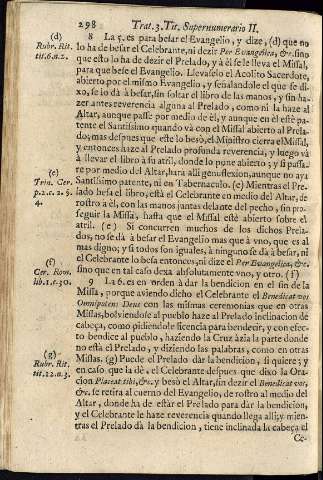 298 Trat. 3. Tit. Supernumerario II.
(d)
Rubr. Rit.
tit. 6. n. 2.
8 La 5. es para besar el Evangelio, y dize, (d) que no
lo ha de besar el Celebrante, ni dezir Per Evangelica, &c. sino
que esto lo ha de dezir el Prelado, y à èl se le lleva el Missal,
para que bese el Evangelio. Llevaselo el Acolito Sacerdote,
abierto por el mismo Evangelio, y señalandole el que se di-
xo, se lo dà à besar, sin soltar el libro de las manos, y sin ha-
zer antes reverencia alguna al Prelado, como ni la haze al
Altar, aunque passe por medio de èl, y aunque en èl estè pa-
tente el Santissimo quando và con el Missal abierto al Prela-
do, mas despues que este lo besò, el Ministro cierra el Missal,
y entonces haze al Prelado profunda reverencia, y luego và
à llevar el libro à su atril, donde lo pone abierto; y si passa-
re por medio del Altar, hara alli genuflexion, aunque no aya
Santissimo patente, ni en Tabernaculo. (e) Mientras el Pre-
lado besa el libro, està el Celebrante en medio del Altar, de
rostro à èl, con las manos juntas delante del pecho, sin pro-
seguir la Missa, hasta que el Missal estè abierto sobre el
atril. (e) Si concurren muchos de los dichos Prela-
dos, no se dà à besar el Evangelio mas que à vno, que es al
mas digno; y si todos son iguales, à ninguno se dà à besar, ni
el Celebrante lo besa entonces, ni dize el Per Evangelica, &c.
sino que en tal caso dexa absolutamente vno, y otro. (f)
(e)
Trin. Cer.
p. 2. c. 2. §.
4.
(f)
Cer. Rom.
lib. 1. c. 30.
9 La 6. es en orden à dar la bendicion en el fin de la
Missa, porque aviendo dicho el Celebrante el Benedicat vos
Omnipotens Deus con las mismas ceremonias que en otras
Missas, bolviendose al pueblo haze al Prelado inclinacion de
cabeça, como pidiendole licencia para bendecir, y con efec-
to bendice al pueblo, haziendo la Cruz àzia la parte donde
no està el Prelado, y diziendo las palabras, como en otras
Missas. (g) Puede el Prelado dàr la bendicion, si quiere; y
en caso que la dè, el Celebrante despues que dixo la Ora-
cion Placeat tibi, &c. y besò el Altar, sin dezir el Benedicat vos,
&c. se retira al cuerno del Evangelio, de rostro al medio del
Altar, donde ha de estàr el Prelado para dàr la bendicion,
y el Celebrante le haze reverencia quando llega alli; y mien-
tras el Prelado dà la bendicion, tiene inclinada la cabeça el
(g)
Rubr. Rit.
tit. 12. n. 3.
Ce-